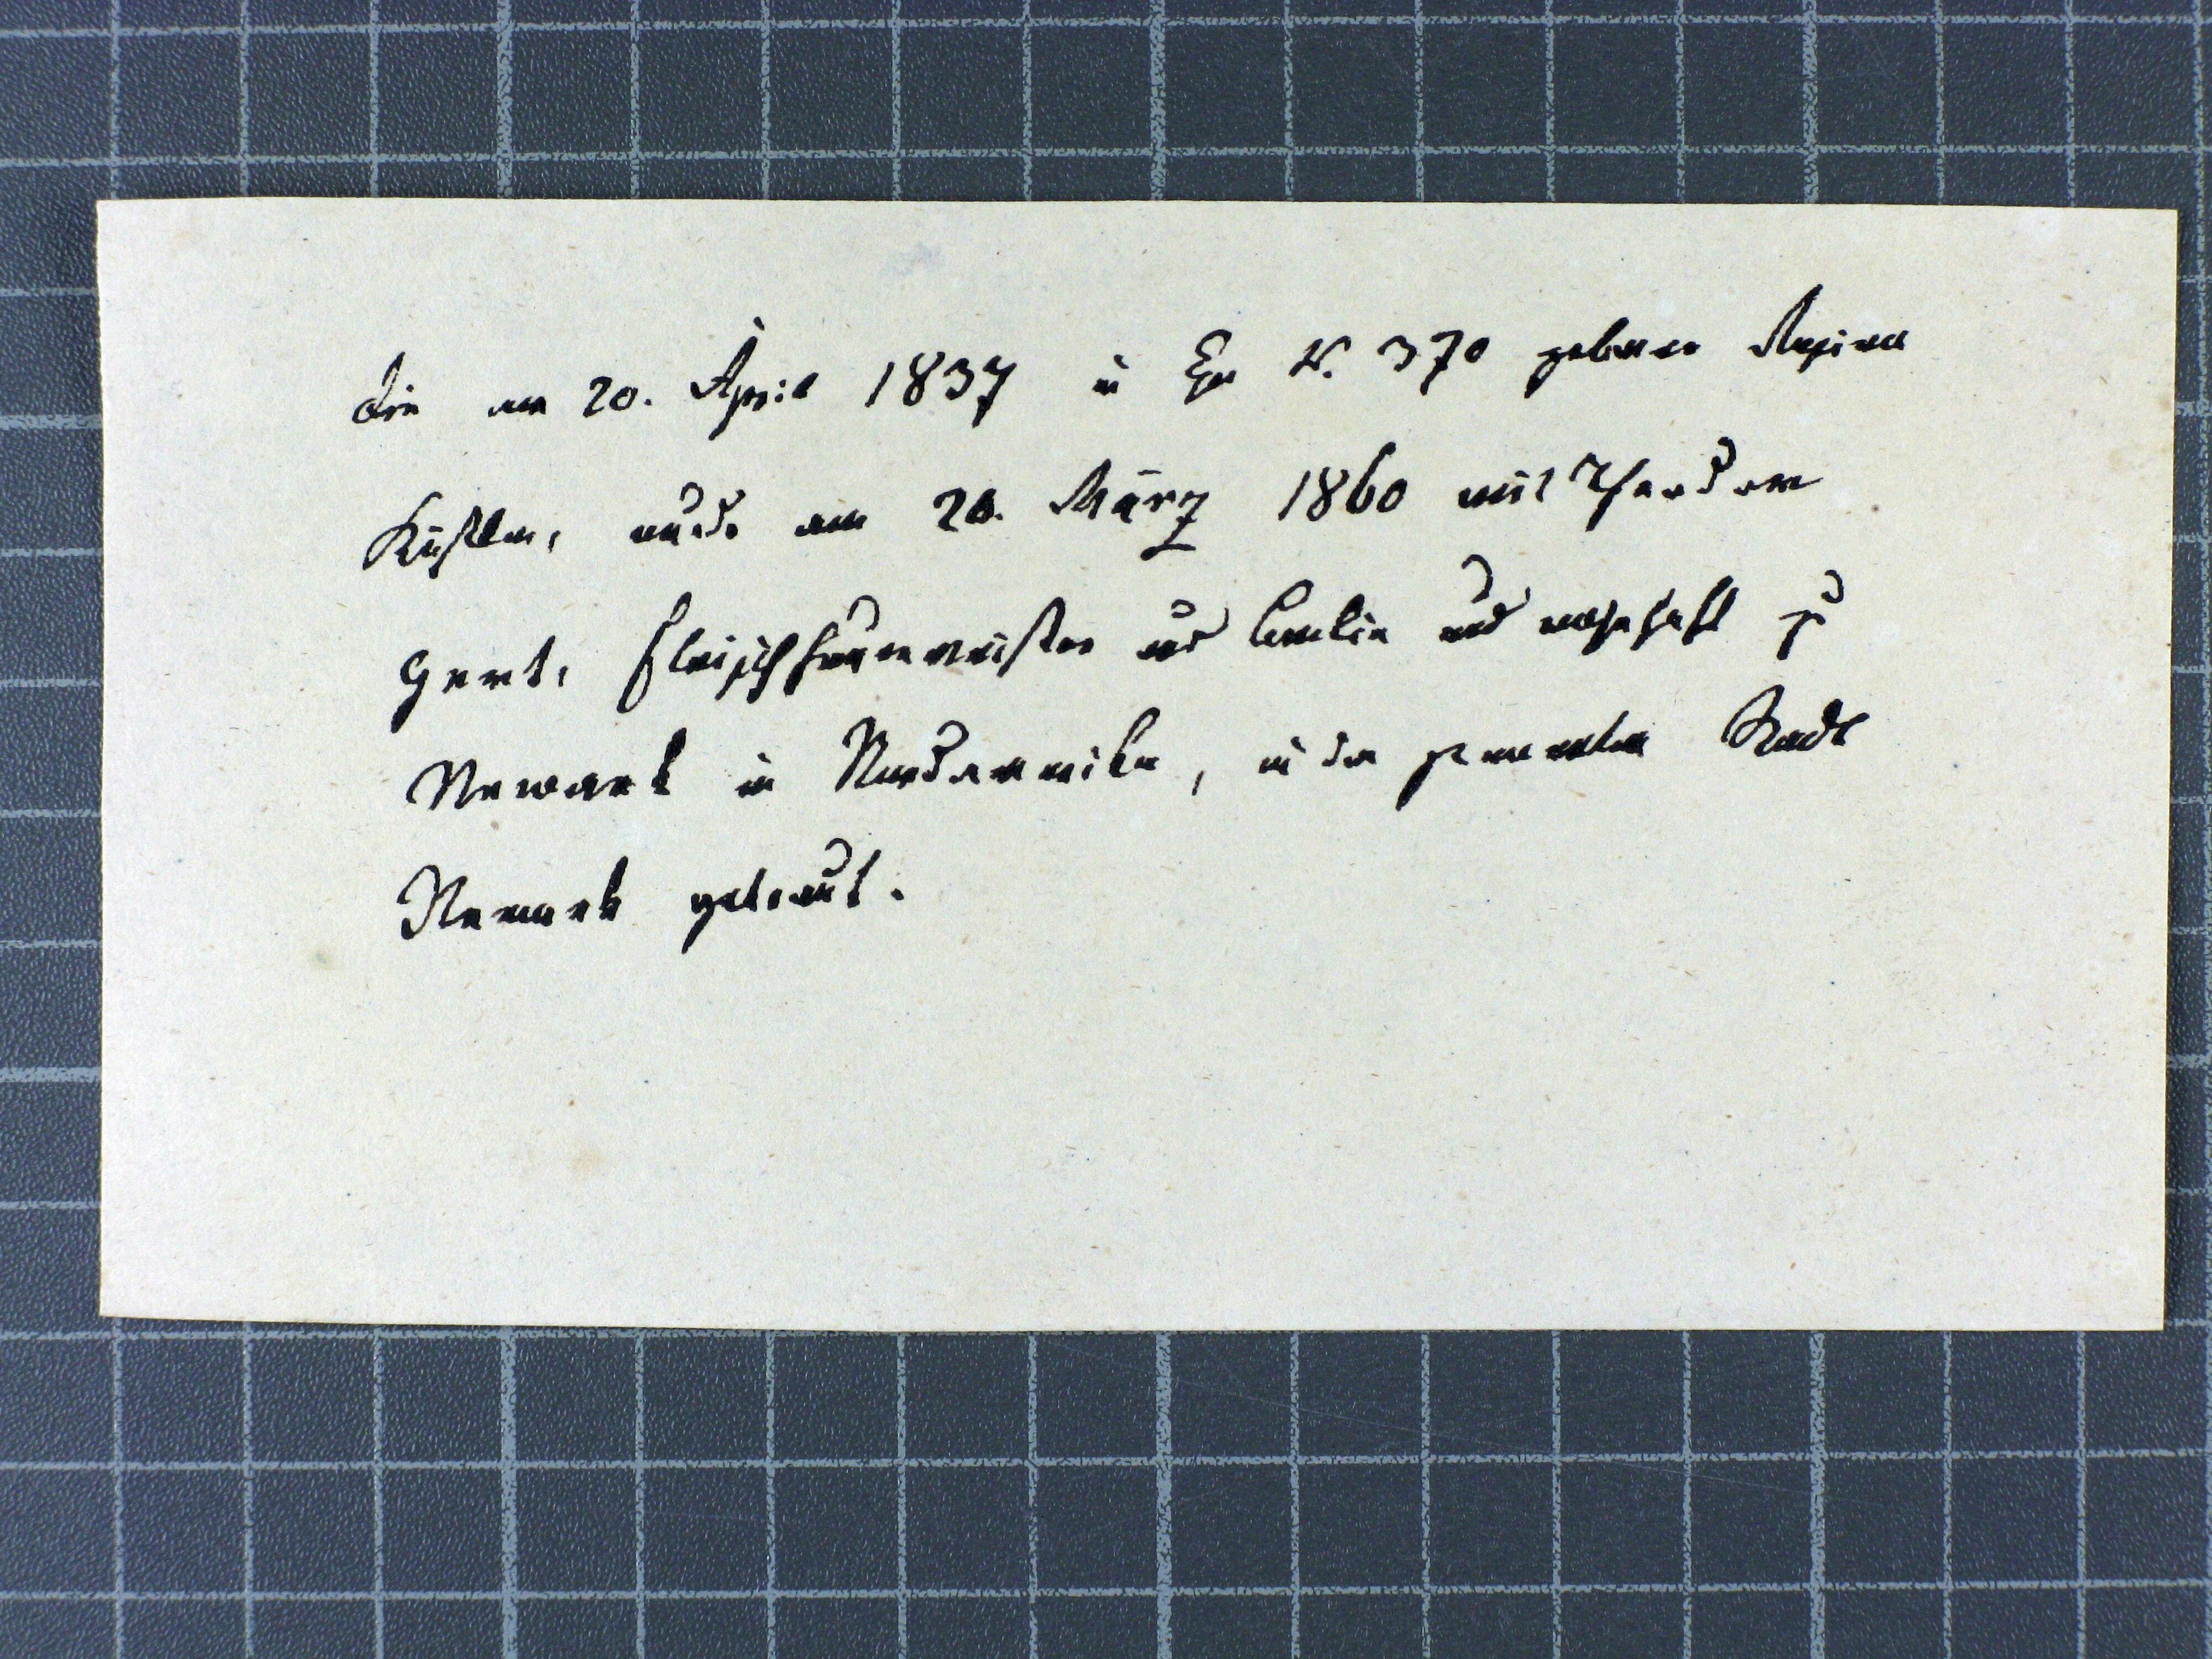 die am 20. April 1837 in Eger N. 370 geborene Regina
Küstler, wurde am 20. März 1860 mit Theodor
Gent, Fleischhauermeister aus Berlin und wohnhaft zu
Newark in Nordamerika, in der genannten Stadt
Newark getraut.